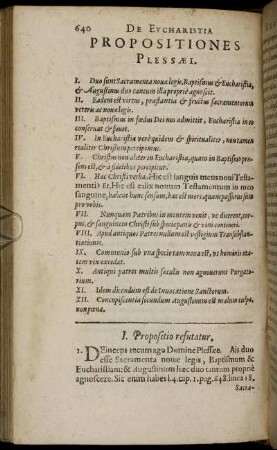 640 DE EVCHARISTIA
PROPOSITIONES
PLESSÆI.
I. Duo sunt Sacramenta nouæ legis, Baptismus & Eucharistia,
& Augustinus duo tantum ista propriè agnoscit.
II. Eadem est virtus, præstantia & fructus sacramentorum
veteris ac nouæ legis.
III. Baptismus in fœdus Dei nos admittit, Eucharistia in eo
conseruat & fouet.
IV. In Eucharistia verè quidem & spiritualiter, non tamen
realiter Christum percipimus.
V. Christus non aliter in Eucharistia, quam in Baptismo præ-
sens est, & à fidelibus participatur.
VI. Hæc Christi verba, Hic est sanguis meus noui Testa-
menti: Et, Hic est calix nouum Testamentum in meo
sanguine, habent hunc sensum, hæc est mors, quam passurus sum
pro vobis.
VII. Nunquam Patribus in mentem venit, vt dicerent, cor-
pus, & sanguinem Christi sub speciebus panis & vini contineri.
VIII. Apud antiquos Patres nullum est vestigium Transubstan-
tiationis.
IX. Communio sub vna specie tam noua est, vt hominis æta-
tem vix excedat.
X. Antiqui patres multis seculis non agnouerunt Purgato-
rium.
XI. Idem dicendum est de Inuocatione Sanctorum.
XII. Concupiscentia secundum Augustinum est malum culpæ,
non pœnæ.
I. Propositio refutatur.
1. DEinceps tecum ago Domine Plessæe. Ais duo
esse Sacramenta nouæ legis, Baptismum &
Eucharistiam: & Augustinum hæc duo tantum propriè
agnoscere. Sic enim habes l. 4. cap. 1. pag. 648. linea 18.
Sacra-